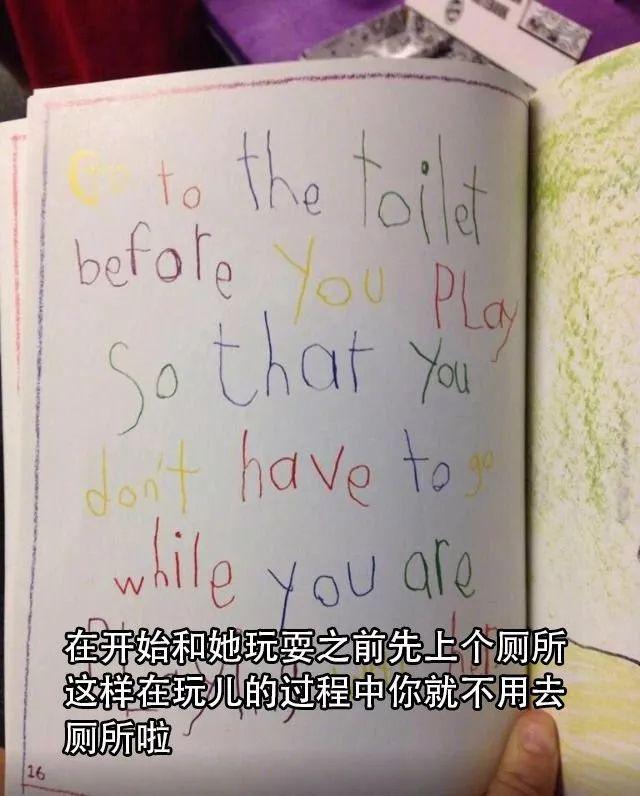 Go to the toilet
before you Play
So that you
don't have to go
while you are
Playing her
在开始和她玩耍之前先上个厕所
这样在玩儿的过程中你就不用去
厕所啦
16